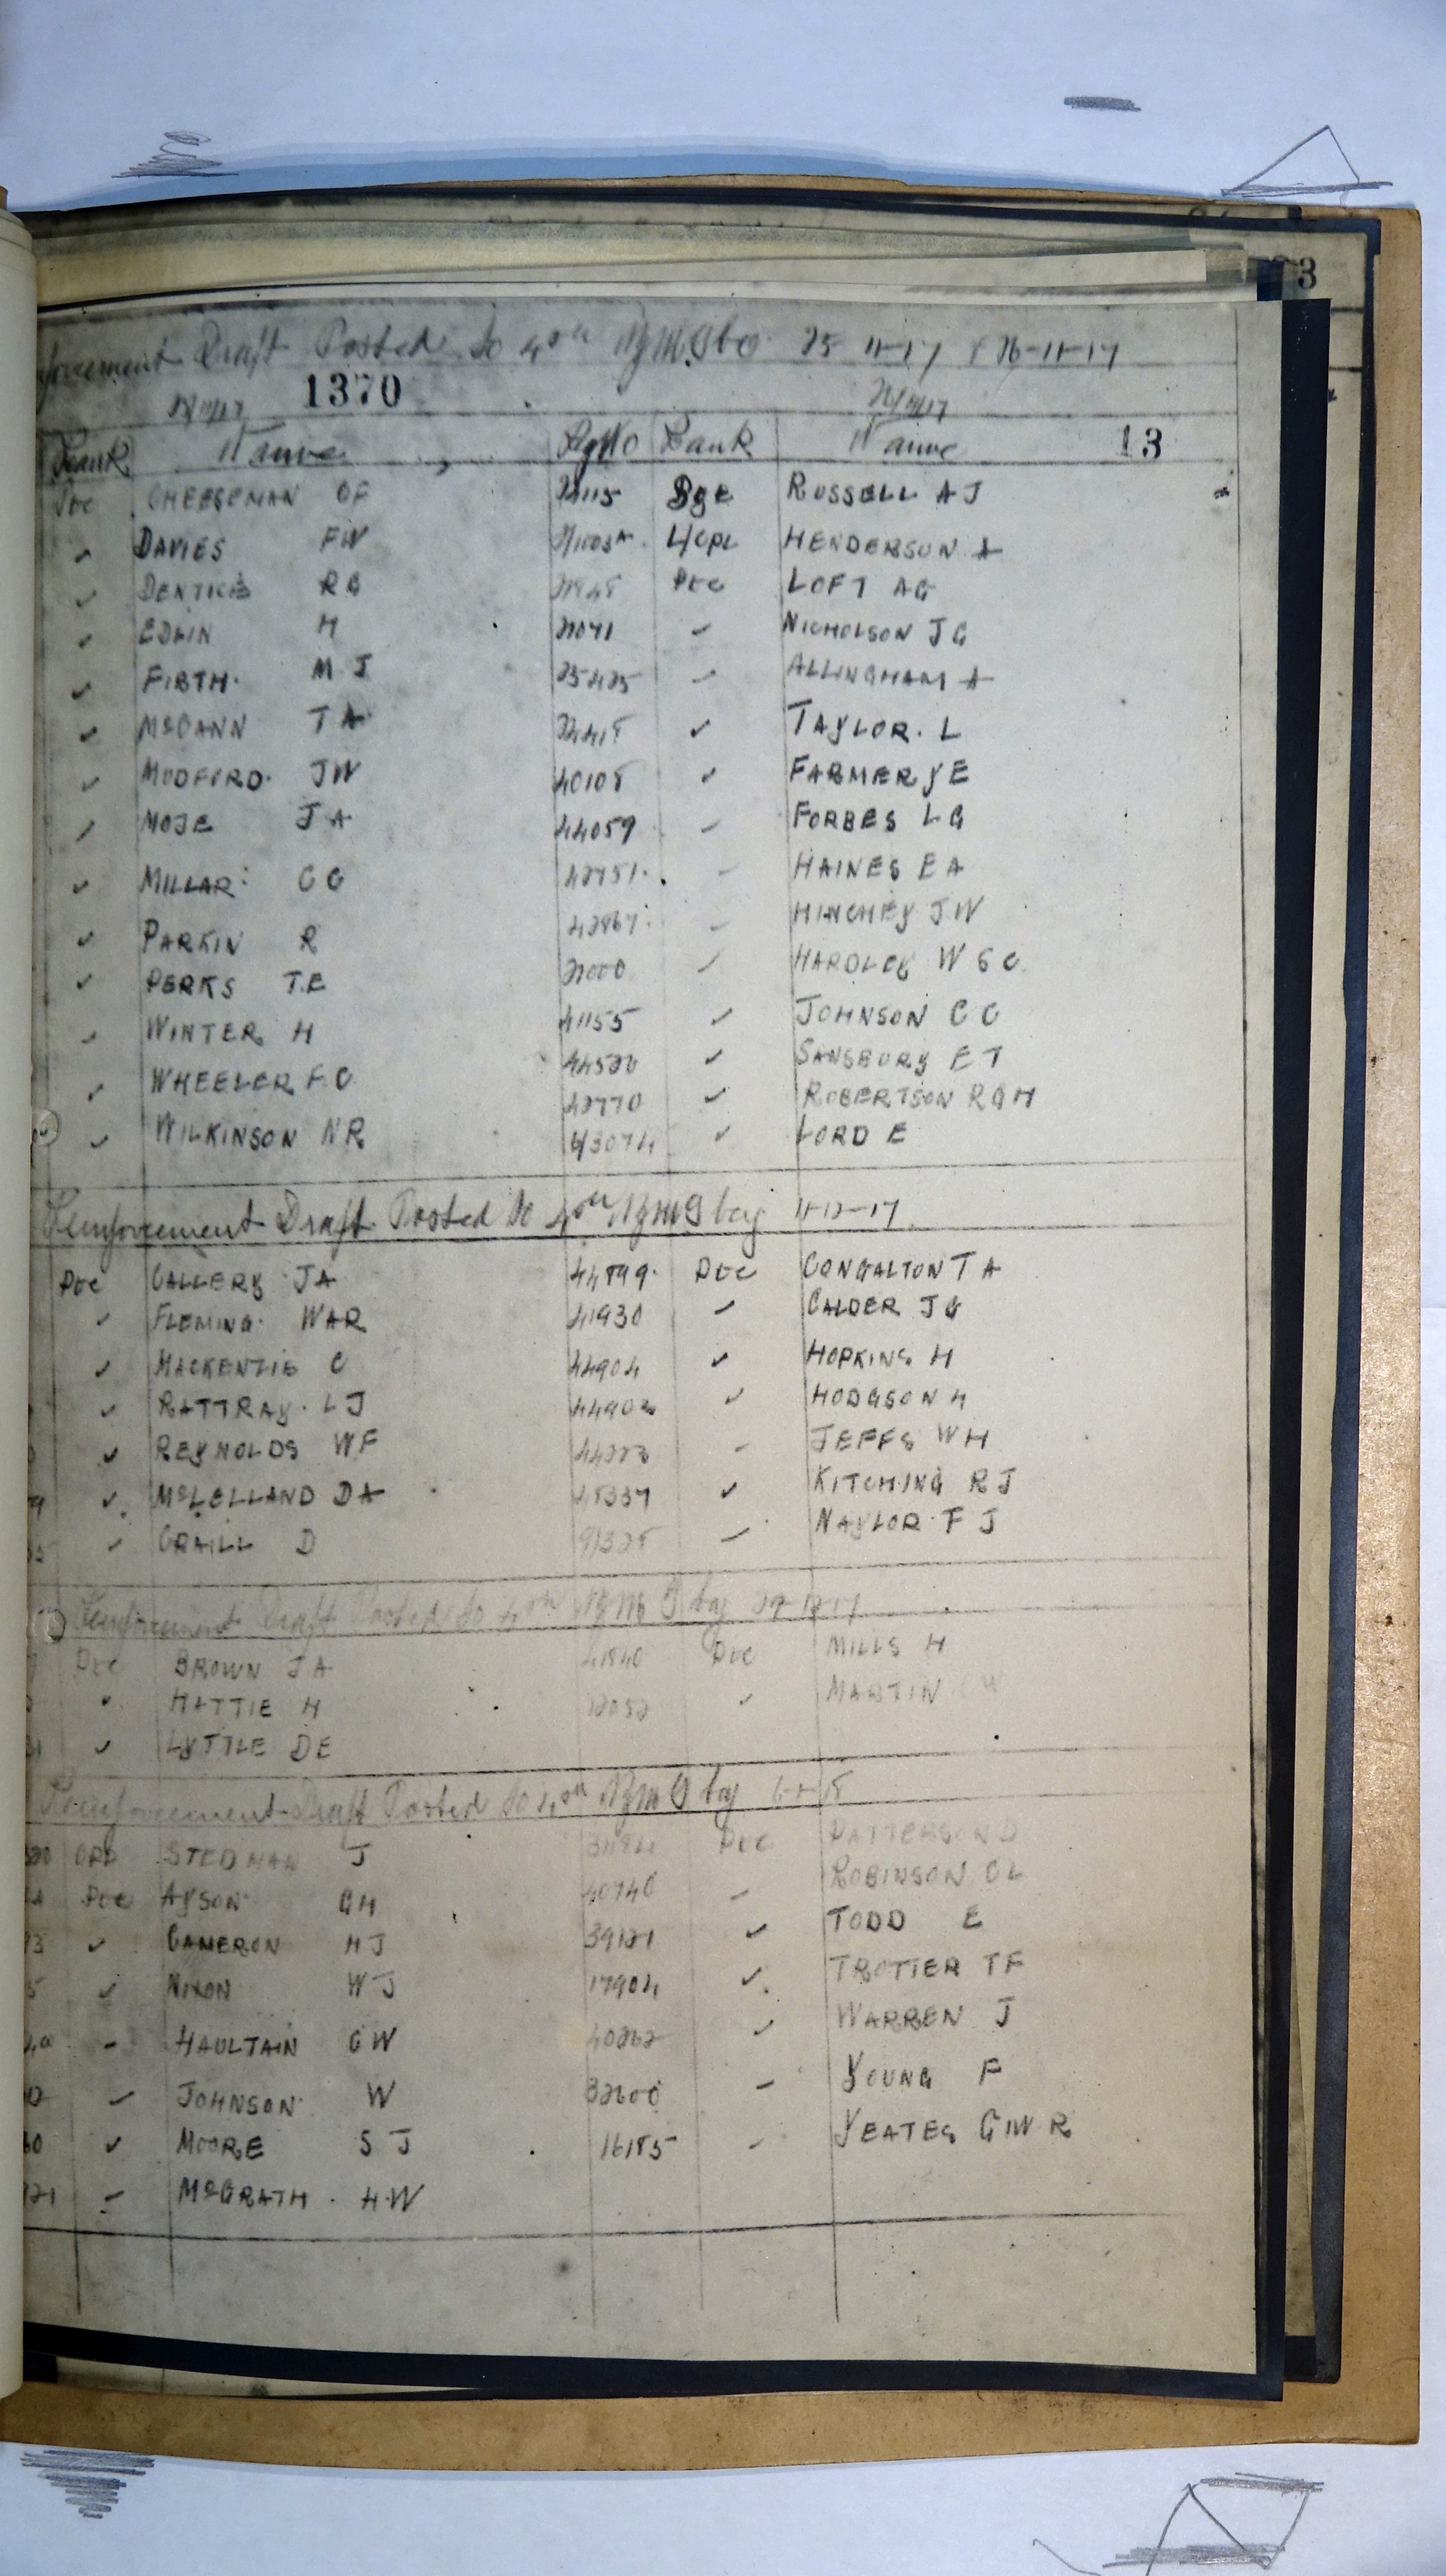 Draft Posted to 4th NZMG Coy 25-11-17 & 26-11-17
1370
Rank Name RegNo Rank Name 13
Pte CHEESEMAN OF 24115 Sgt RUSSELL A J
✓ DAVIES FW L/CPL HENDERSON A
✓ RG Pte LOFT AG
✓ EDLIN H ✓ NICHOLSON J G
✓ FIRTH. M J 25425 ✓ ALLINGHAM A
✓ McCANN T A ✓ TAYLOR. L
✓ MUDFORD. JW 40108 ✓ FARMER Y E
✓ MOJE J A 44059 ✓ FORBES L G
✓ MILLAR. C G 42751. ✓ HAINES E A
✓ PARKIN R 42867. ✓ HINCHEY J W
✓ PERKS T.E ✓ HARDLEY W S C
✓ WINTER H 41155 ✓ JOHNSON C C
✓ WHEELER F.C ✓ SANSBURY E T
✓ WILKINSON NR 42770 ✓ ROBERTSON R G H
6/3074 ✓ LORD E
Reinforcement Draft Posted to 4th NZMG Coy 11-12-17
Pte CALLERY JA 44899. Pte CONGALTON T A
✓ FLEMING. WAR 41930 ✓ CALDER J G
✓ MACKENZIE C 44904 ✓ HOPKINS H
✓ RATTRAY. L J 44902 ✓ HODGSON H
✓ REYNOLDS WF ✓ JEFFS W H
✓ McLELLAND DA 45337 ✓ KITCHING R J
✓ CRAILL D ✓ NAYLOR F J
Reinforcement Draft Posted to 4th NZMG Coy 29-12-17
Pte BROWN J A 41840 Pte MILLS H
✓ HATTIE H ✓ MARTIN W
✓ LYTTLE DE
Reinforcement Draft Posted to 4th NZMG Coy 6-1-18
CPL STEDMAN J Pte PATTERSON D
Pte AYSON GH 40740 ✓ ROBINSON C L
✓ CAMERON H J 39121 ✓ TODD E
✓ NIXON W J 17904 ✓ TROTTER T F
✓ HAULTAIN G W 40262 ✓ WARREN J
✓ JOHNSON W 32600 ✓ YOUNG F
✓ MOORE S J 16185 ✓ YEATES G W R
✓ McGRATH. H.W